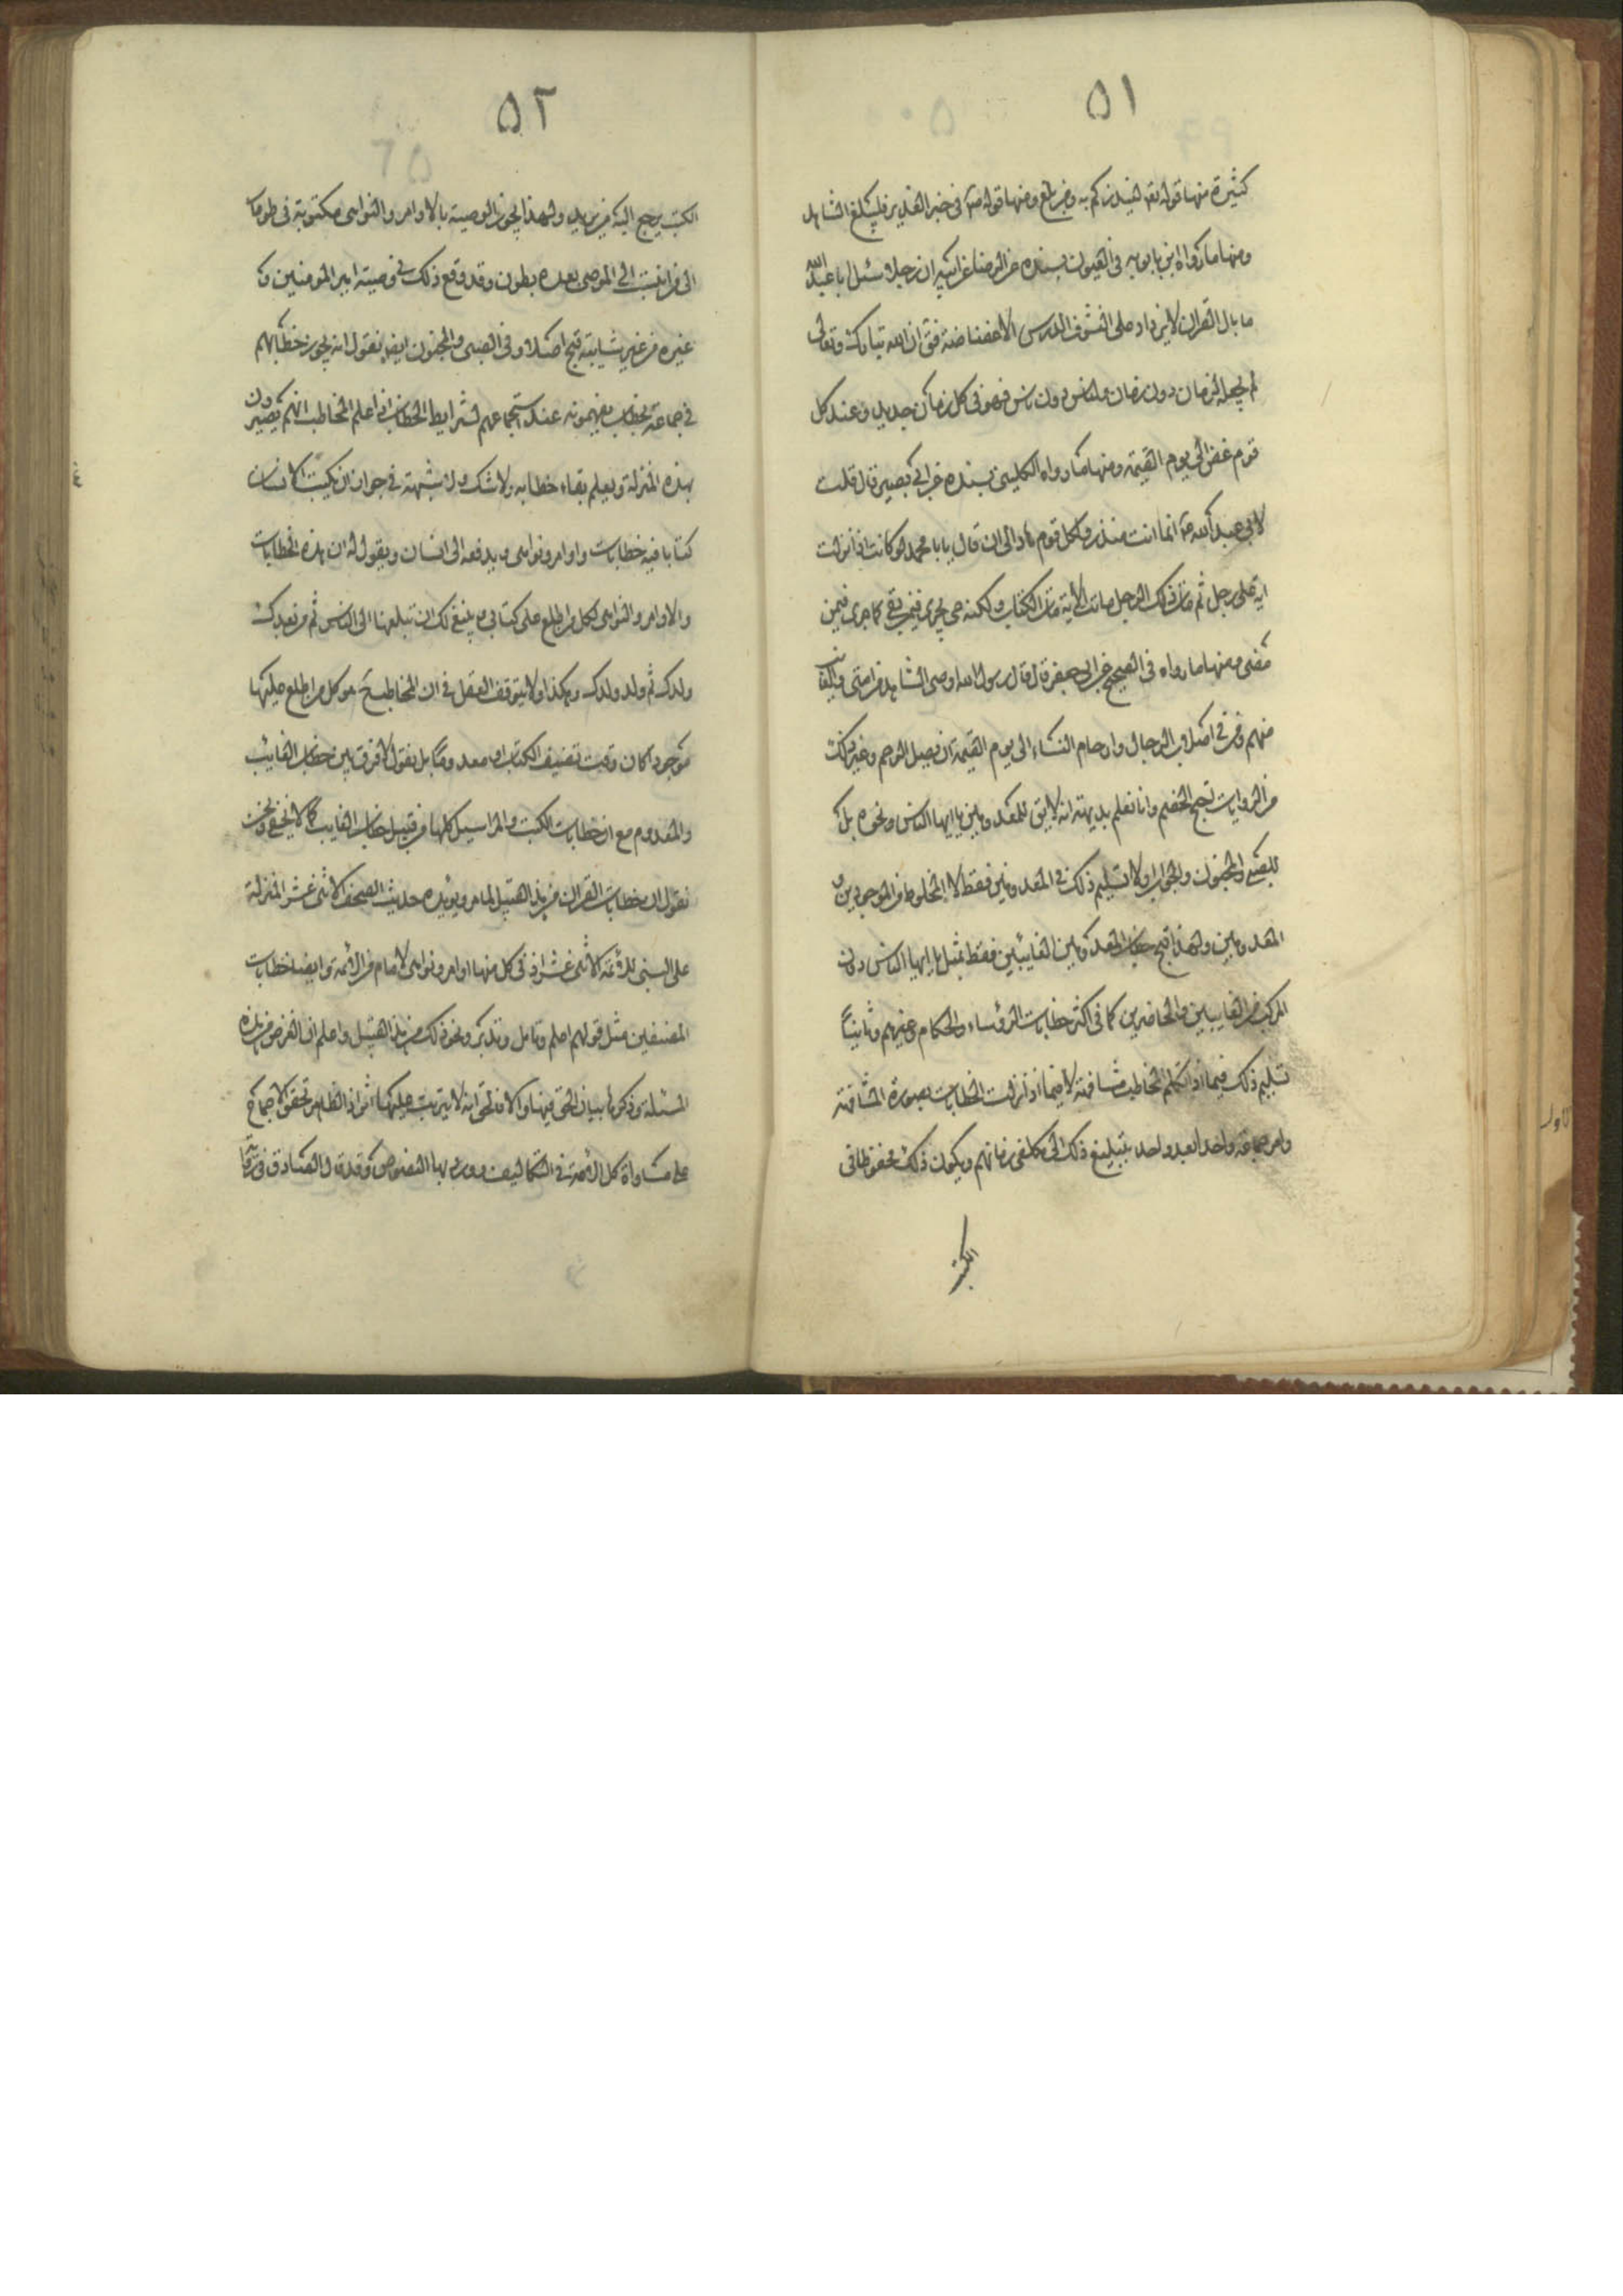 ٥١
كثيرة منها قوله تعه لينذركم به ومن بلغ ومنها قوله ص في خبر الغدير فليبلغ الشاهد
ومنها ما رواه ابن بابويه في العيون بسنده عن الرضا عن ابيه ان رجلا سئل ابا عبد الله
ما بال القران لا يزداد على النشر والدرس الا غضاضة فق ان الله تبارك وتعالى
لم يجعله لزمان دون زمان ولناس دون ناس فهو في كل زمان جديد وعند كل
قوم غض الى يوم القيمة ومنها ما رواه الكليني بسنده عن ابي بصير قال قلت
لابي عبد الله ع انما انت منذر ولكل قوم هاد الى ان قال يا با محمد لو كانت اذا نزلت
اية على رجل ثم مات ذلك الرجل ماتت الاية مات الكتاب ولكنه حي يجري فيمن بقي كما جرى فيمن
مضى ومنها ما رواه في الصحيح عن ابي جعفر قال قال رسول الله اوصي الشاهد من امتي والغائب
منهم ومن في اصلاب الرجال وارحام النساء الى يوم القيمة ان يصل الرحم وغير ذلك
من الروايات احتج الخصم وانا نعلم بديهة انه لا يق للمعدومين يا ايها الناس ونحوه بل
للصبي والمجنون والجواب اولا تسليم ذلك في المعدومين فقط لا المخلوط من الموجودين و
المعدومين ولهذا قبح خطاب المعدومين الغايبين فقط بمثل يا ايها الناس دون
المركب من الغايبين والحاضرين كما في اكثر خطابات الرؤساء والحكام وغيرهم وثانياً
تسليم ذلك فيما اذا تكلم المخاطب مشافهة لا فيما اذا نزلت الخطابات بصورة المشافهة
وامر جماعة واحدا بعد واحد بتبليغ ذلك الى مكلفي زمانهم ويكون ذلك محفوظا في
الكتب
٥٢
الكتب يرجع اليه من يريد ولهذا يجوز الوصية بالاوامر والنواهي مكتوبة في طومار
الى من انتسب الى الموصى بعده بطون وقد وقع ذلك في وصية امير المومنين و
غيره من غير شايبة قبح اصلا وفي الصبي والمجنون ايضا نقول انه يجوز خطابهم
في جماعة بخطاب يفهمونه عند استجماعهم لشرايط الخطاب اذا علم المخاطب انهم يصيرون
بهذه المنزلة ويعلم بقاء خطابه ولا شك ولا شبهة في جواز ان يكتب الانسان
كتابا فيه خطابات واوامر ونواهي ويدفعه الى انسان ويقول له ان هذه الخطابات
والاوامر والنواهي لكل من اطلع على كتابي وينبغي لك ان تبلغها الى الناس ثم من بعدك
ولدك ثم ولد ولدك وهكذا ولا يتوقف العقل في ان المخاطب ح هو كل من اطلع عليها
موجودا كان وقت تصنيف الكتاب او معدوما بل نقول لا فرق بين خطاب الغائب
والمعدوم مع ان خطابات الكتب والمراسيل كلها من قبيل خطاب الغايب كما لا يخفى ونحن
نقول ان خطابات القران من هذا القبيل لما مر ويؤيده حديث الصحف الاثنى عشر المنزلة
على النبي للائمة الاثنى عشر اذ في كل منها اوامر ونواهي لامام من الائمة وايضا خطابات
المصنفين مثل قولهم اعلم وتامل وتدبر ونحو ذلك من هذا القبيل واعلم ان الغرض من هذه
المسئلة وذكرها بيان الحق فيها والا فالحق انه لا يترتب عليها اثر اذ الظاهر تحقق الاجماع
على مساواة كل الامة في التكاليف وورد بها النصوص وقد قال الصادق